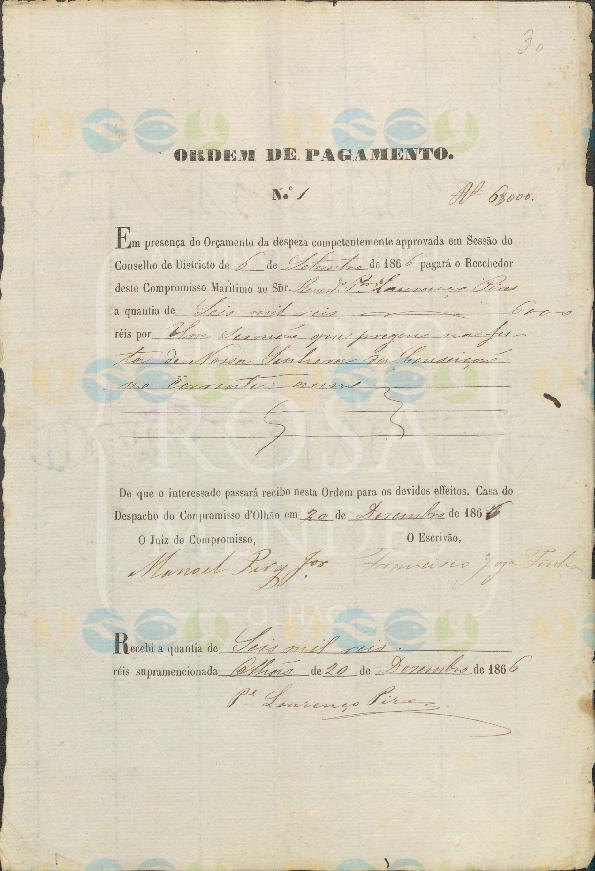 30
ORDEM DE PAGAMENTO.
N.º 1 Rs 6$000.
Em presença do Orçamento da despeza competentemente approvada em Sessão do
Conselho de Districto de 6 de Setembro de 1866 pagará o Recebedor
deste Compromisso Maritimo ao Snr. Lourenço Pires
a quantia de Seis mil reis 6000
réis por Sermão que pregou na fes-
ta de Nossa Senhora da Conceição
no corrente anno
De que o interessado passará recibo nesta Ordem para os devidos effeitos. Casa do
Despacho do Compromisso d'Olhão em 20 de Dezembro de 1866
O Juiz do Compromisso, O Escrivão,
Manoel Francisco
Recebi a quantia de Seis mil reis.
réis supramencionada Olhão de 20 de Dezembro de 1866
Pe Lourenço Pires
ROSA
OLHÃO